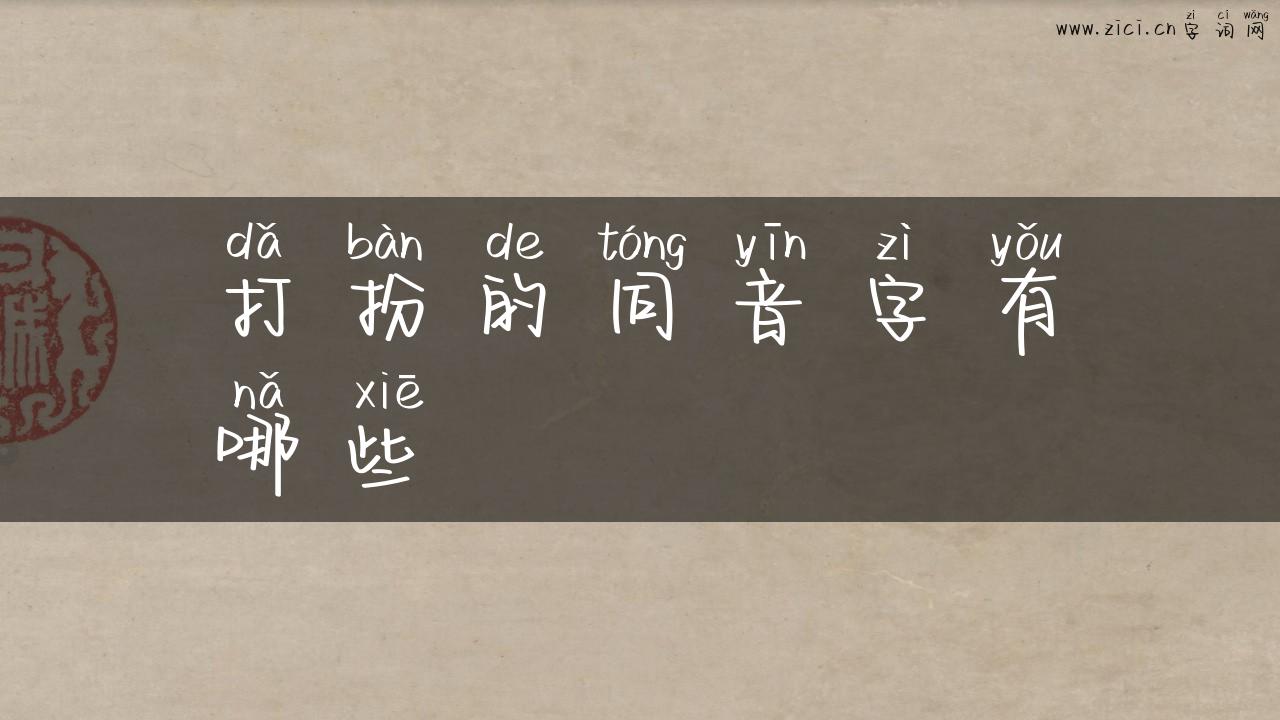 zì cí wǎng
www.zici.cn 字词网
dǎ bàn de tóng yīn zì yǒu
打扮的同音字有
nǎ xiē
哪些